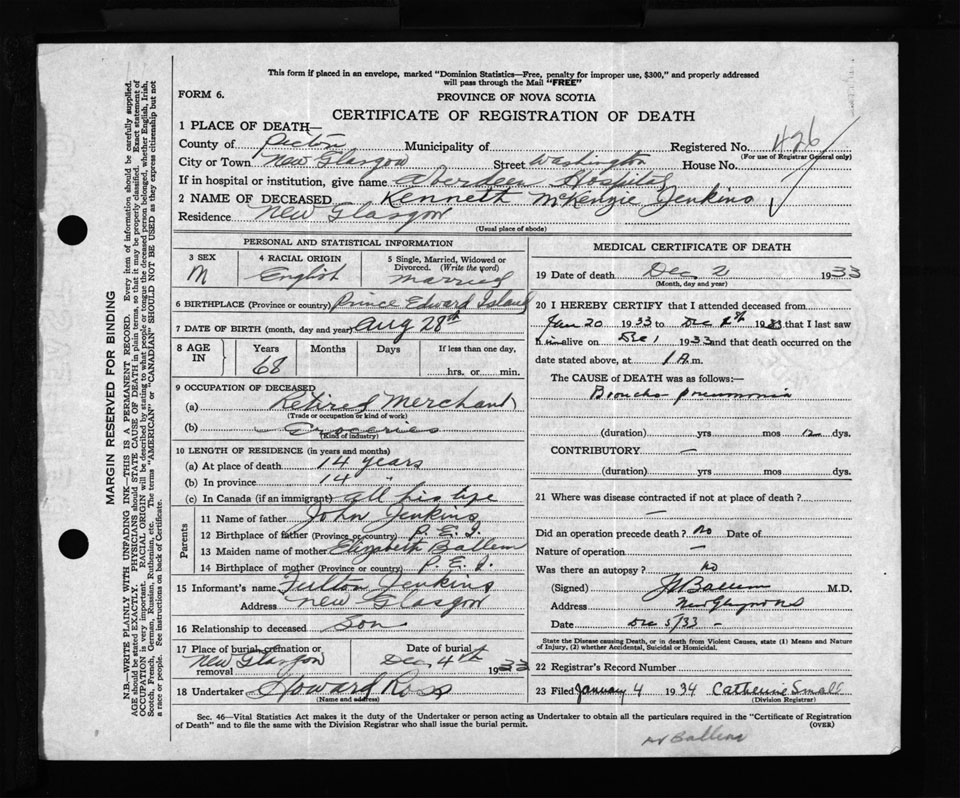 This form if placed in an envelope, marked "Dominion Statistics—Free, penalty for improper use, $300," and properly addressed
will pass through the Mail "FREE"
FORM 6.
PROVINCE OF NOVA SCOTIA
CERTIFICATE OF REGISTRATION OF DEATH
1 PLACE OF DEATH—
County of Pictou Municipality of Registered No. 426
(For use of Registrar General only)
City or Town New Glasgow Street Washington House No.
If in hospital or institution, give name Aberdeen Hospital
2 NAME OF DECEASED Kenneth McKenzie Jenkins
Residence New Glasgow
(Usual place of abode)
PERSONAL AND STATISTICAL INFORMATION
3 SEX 4 RACIAL ORIGIN 5 Single, Married, Widowed or
Divorced. (Write the word)
M English Married
6 BIRTHPLACE (Province or country) Prince Edward Island
7 DATE OF BIRTH (month, day and year) Aug 28th
8 AGE IN Years Months Days If less than one day,
68 hrs. or min.
9 OCCUPATION OF DECEASED
(a) Retired Merchant
(Trade or occupation or kind of work)
(b) Groceries
(Kind of industry)
10 LENGTH OF RESIDENCE (in years and months)
(a) At place of death 14 years
(b) In province 14 "
(c) In Canada (if an immigrant) all his life
Parents
11 Name of father John Jenkins
12 Birthplace of father (Province or country) P. E. I.
13 Maiden name of mother Elizabeth Ballem
14 Birthplace of mother (Province or country) P. E. I.
15 Informant's name Fulton Jenkins
Address New Glasgow
16 Relationship to deceased Son
17 Place of burial, cremation or removal Date of burial
New Glasgow Dec. 4th 1933
18 Undertaker Howard Ross
(Name and address)
MEDICAL CERTIFICATE OF DEATH
19 Date of death Dec 2 1933
(Month, day and year)
20 I HEREBY CERTIFY that I attended deceased from
Jan 20 1933 to Dec 1933 that I last saw
h im alive on Dec 1 1933 and that death occurred on the
date stated above, at 1 A.m.
The CAUSE of DEATH was as follows:—
Broncho pneumonia
(duration) yrs mos 12 dys.
CONTRIBUTORY —
(duration) yrs. mos. dys.
21 Where was disease contracted if not at place of death?
—
Did an operation precede death? No Date of
Nature of operation —
Was there an autopsy? No
(Signed) Ballem M.D.
Address New Glasgow N S
Date Dec 5/33 -
State the Disease causing Death, or in death from Violent Causes, state (1) Means and Nature
of Injury, (2) whether Accidental, Suicidal or Homicidal.
22 Registrar's Record Number
23 Filed January 4 1934 Catherine Small
(Division Registrar)
Sec. 46—Vital Statistics Act makes it the duty of the Undertaker or person acting as Undertaker to obtain all the particulars required in the "Certificate of Registration
of Death" and to file the same with the Division Registrar who shall issue the burial permit.
(OVER)
Ballem
MARGIN RESERVED FOR BINDING
N.B.—WRITE PLAINLY WITH UNFADING INK—THIS IS A PERMANENT RECORD. Every item of information should be carefully supplied.
AGE should be stated EXACTLY. PHYSICIANS should STATE CAUSE OF DEATH in plain terms, so that it may be properly classified. Exact statement of
OCCUPATION is very important. RACIAL ORIGIN will be described by stating to what people or tongue the deceased person belonged, whether English, Irish,
Scotch, French, German, Russian, Ruthenian, etc. The terms "AMERICAN" or "CANADIAN" SHOULD NOT BE USED as they express citizenship but not
a race or people. See instructions on back of Certificate.